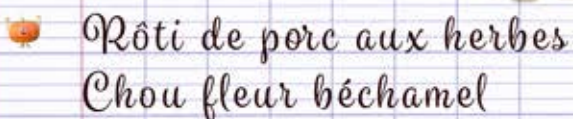 Rôti de porc aux herbes
Chou fleur béchamel